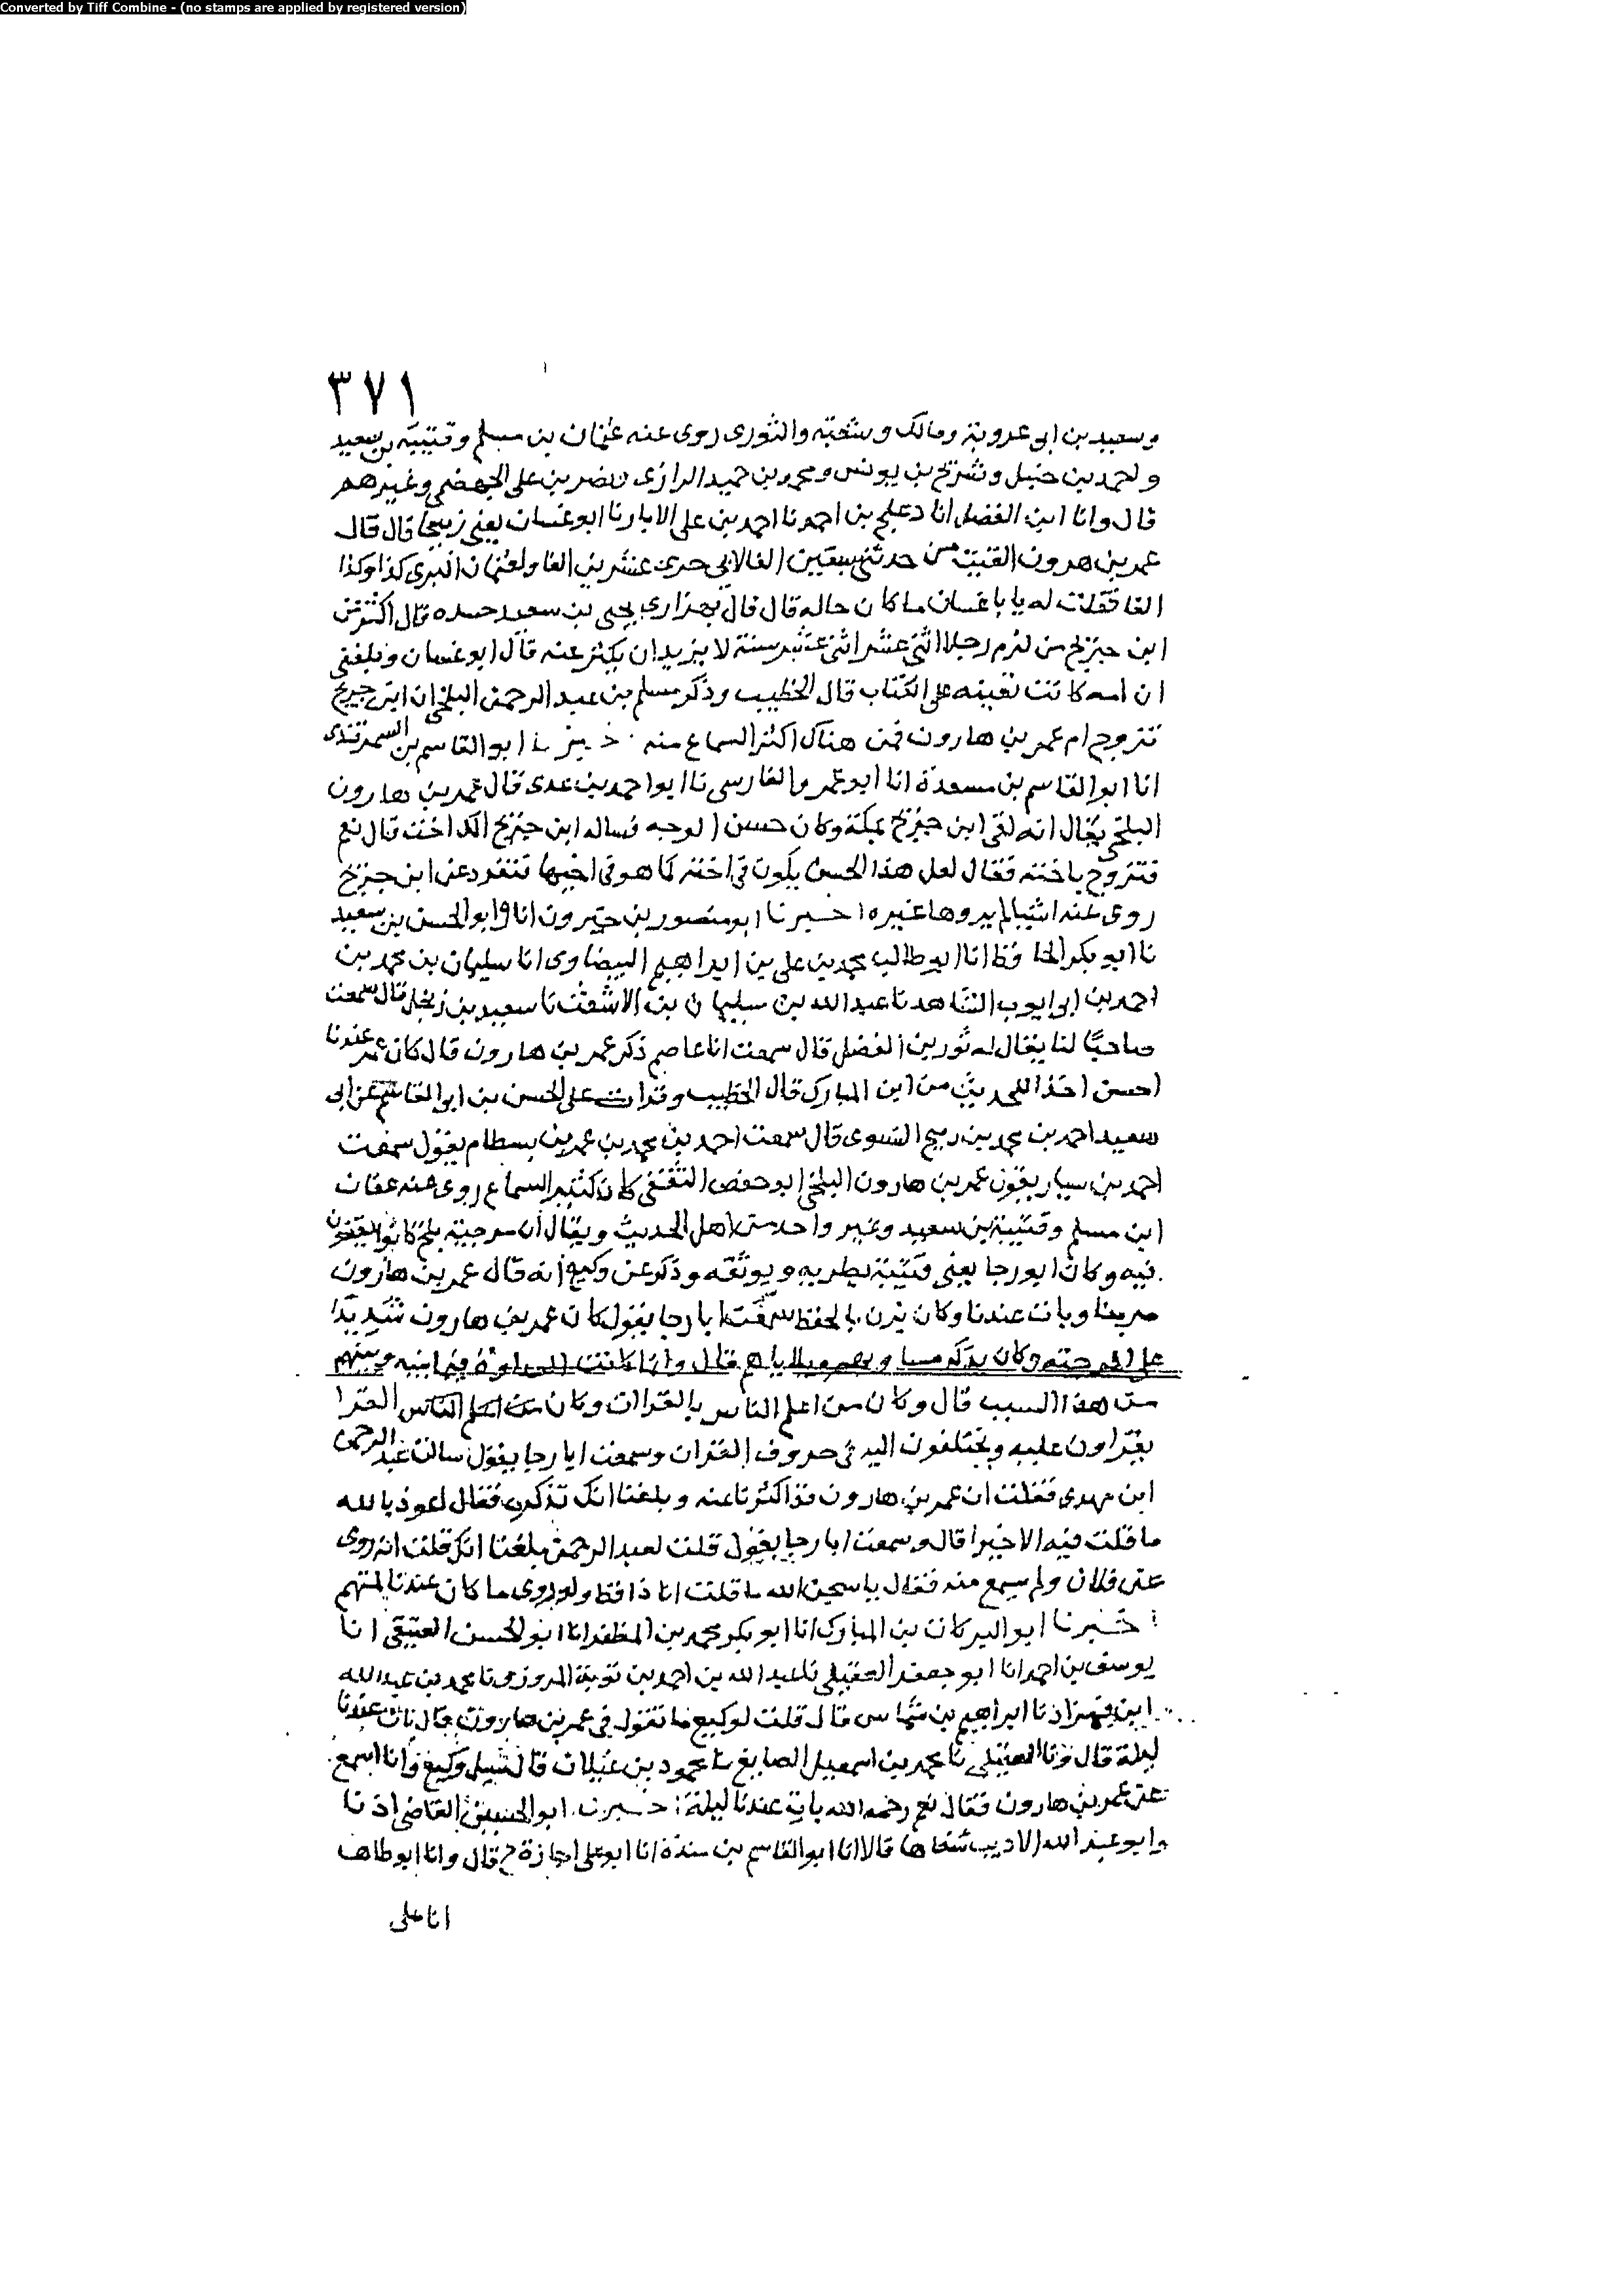 Converted by Tiff Combine - (no stamps are applied by registered version)
٣٧١
وسعيد بن ابى عروبة ومالك وشعبة والثورى روى عنه عثمان بن مسلم وقتيبة بن سعيد
واحمد بن حنبل وشريح بن يونس ومحمد بن حميد الرازى ونصر بن على الجهضمى وغيرهم
قال وانا ابن الفضل انا دعلج بن احمد نا احمد بن على الابار نا ابو غسان يعنى زنيجا قال قال
عمر بن هرون القيت من حديثى سبعين الفا لابى جزى عشرين الفا ولعثمان البرى كذا وكذا
الفا فقلت له يا با غسان ما كان حاله قال قال بهز ارى يحيى بن سعيد حسده قال اكثر عن
ابن جريج من لزم رجلا اثنى عشر اثنى عشر سنة لا يزيد ان يكثر عنه قال ابو غسان وبلغنى
ان امه كانت تعينه على الكتاب قال الخطيب وذكر مسلم بن عبد الرحمن البلخى ان ابن جريج
تزوج ام عمر بن هارون فمن هناك اكثر السماع منه اخبرنا ابو القاسم بن السمرقندى
انا ابو القاسم بن مسعدة انا ابو عمرو الفارسى نا ابو احمد بن عدى قال عمر بن هارون
البلخى يقال انه لقى ابن جريج بمكة وكان حسن الوجه فساله ابن جريج الك اخت قال نعم
فتزوج باخته فقال لعل هذا الحسن يكون فى اخته كما هو فى اخيها تتفرد عن ابن جريج
روى عنه اشيا لم يروها غيره اخبرنا ابو منصور بن خيرون انا وابو الحسن بن سعيد
نا ابو بكر الحافظ انا ابو طالب محمد بن على بن ابراهيم البيضاوى انا سليمان بن محمد بن
احمد بن ابى ايوب الشاهد نا عبد الله بن سليمان بن الاشعث نا سعيد بن زنجل قال سمعت
صاحبا لنا يقال له ثور بن الفضل قال سمعت ابا عاصم ذكر عمر بن هارون قال كان عمر عندنا
احسن اخذا للحديث من ابن المبارك قال الخطيب وقرات على الحسن بن ابو القاسم عن ابى
سعيد احمد بن محمد بن رميح النسوى قال سمعت احمد بن محمد بن عمر بن بسطام يقول سمعت
احمد بن سيار يقول عمر بن هارون البلخى ابو حفص الثقفى كان كثير السماع روى عنه عفان
ابن مسلم وقتيبة بن سعيد وغير واحد من اهل الحديث ويقال ان مرجية بلخ كانوا يقعون
فيه وكان ابو رجا يعنى قتيبة يطريه ويوثقه وذكر عن وكيع انه قال عمر بن هارون
مر بنا وبات عندنا وكان يزن بالحفظ سمعت ابا رجا يقول كان عمر بن هارون شديدا
على المرجئة وكان يذكر مساويهم وبلاياهم قال وانما كانت العداوة فيما بينه وبينهم
من هذا السبب قال وكان من اعلم الناس بالقراات وكان القرا
يقراون عليه ويختلفون اليه فى حروف القران وسمعت ابا رجا يقول سالت عبد الرحمن
ابن مهدى فقلت ان عمر بن هارون قد اكثرنا عنه وبلغنا انك تذكره فقال اعوذ بالله
ما قلت فيه الا خيرا قال وسمعت ابا رجا يقول قلت لعبد الرحمن بلغنا انك قلت انه روى
عن فلان ولم يسمع منه فقال يا سبحن الله ما قلت انا ذا قط ولو روى ما كان عندنا بمتهم
اخبرنا ابو البركات بن المبارك انا ابو بكر محمد بن المظفر انا ابو الحسن العتيقى انا
يوسف بن احمد انا ابو جعفر العقيلى نا عبد الله بن احمد بن توبة المروزى نا محمد بن عبد الله
ابن قهزاد نا ابراهيم بن شماس قال قلت لوكيع ما تقول فى عمر بن هارون قال بات عندنا
ليلة قال ونا العقيلى نا محمد بن اسمعيل الصايغ نا محمود بن غيلان قال سئل وكيع وانا اسمع
عن عمر بن هارون فقال نعم رحمه الله بات عندنا ليلة اخبرنا ابو الحسين القاضى اذنا
وابو عبد الله الاديب شفاها قالا انا ابو القاسم بن مندة انا ابو على اجازة ح قال وانا ابو طاهر
انا على